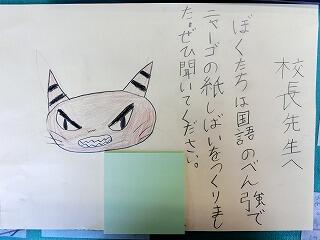 校長先生へ
ぼくたちは国語のべん強で
ニャーゴの紙しばいをつくりまし
た。ぜひ聞いてください。